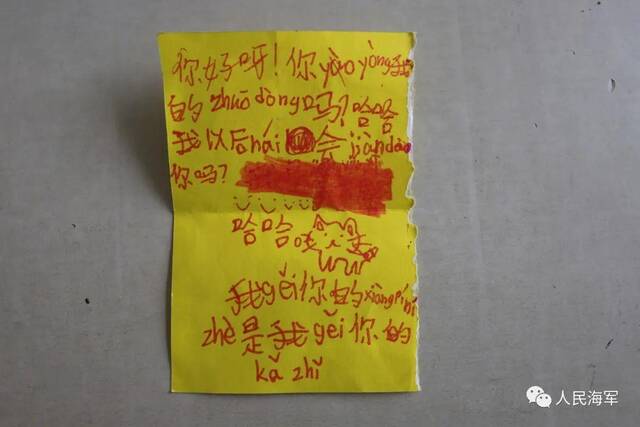 你好呀！你yào yòng我
的zhuō dòng吗？哈哈
我以后hái会jiàn dào
你吗？
哈哈哦
我gěi你的xiàng pí ní
zhè是我gěi你的
kǎ zhǐ
人民海军